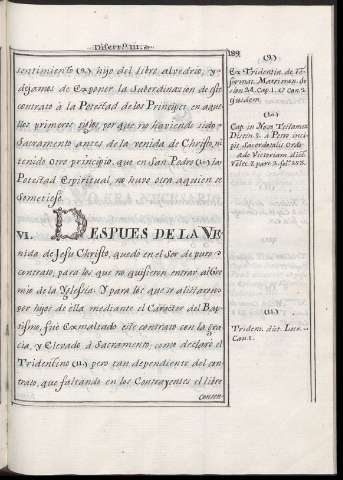 Disert.n III.a
189
sentimiento (9.) hijo del libre alvedrio, y
dejamos de Exponer la Subordinacion de este
contrato â la Potestad de los Principes en aque
llos primeros siglos, por que no haviendo sido
Sacramento antes de la venida de Christo, ni
tenido otro principio, que en San Pedro (10.) la
Potestad Espiritual, no huvo otra aquien se
Sometiese.
VI. DESPUES DE LA VE
nida de Jesu Christo, quedo en el Ser de puro
contrato, para los que no quisieren entrar al Gre
mio de la Yglesia. Y para los que se alistaron
por hijos de ella mediante el Caracter del Bap
tismo, fuê Exmaltado este contrato con la gra
cia, y Elevado â Sacramento, como declarô el
Tridentino (11.) pero tan dependiente del con
trato, que faltando en los Contrayentes el libre
consen
(9.)
Ex Tridentin. de re
format. Matrimon. se
sion 24. Cap. 1. et Can. 2
quidem.
(10.)
Cap. in Novo Testamen.
Distin. 2. a Petro inci
pit Sacerdotalis Ordo
(11.)
Trident. dict. Loco
Can. 1.